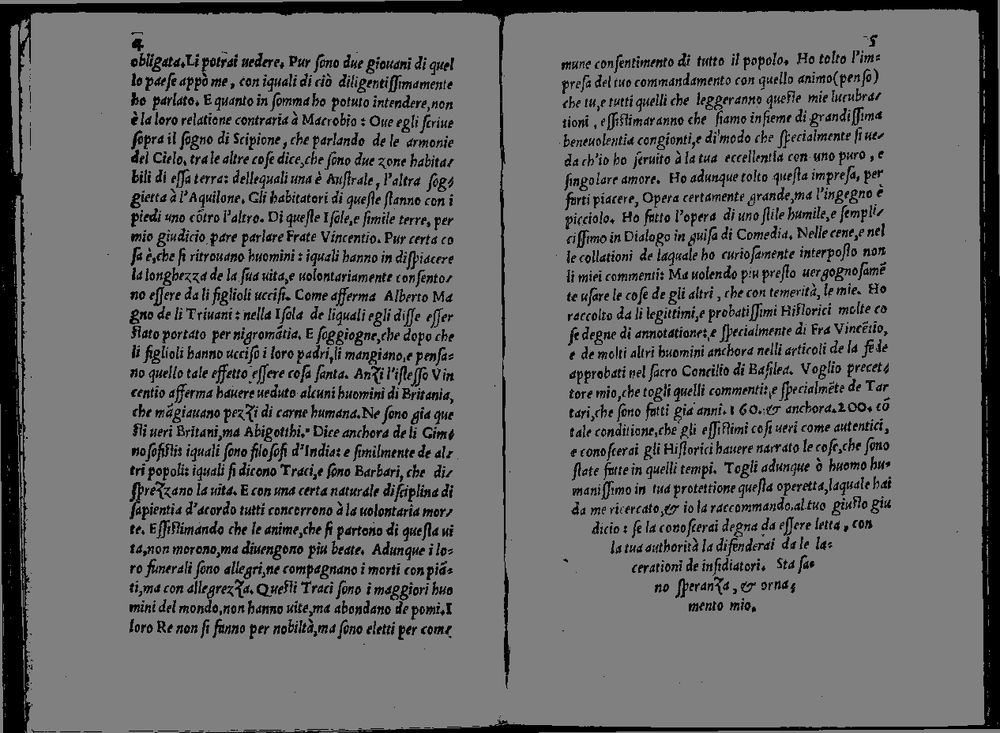 4
obligata. Li potrai uedere. Pur ſono due giouani di quel
lo paeſe appò me, con iquali di ciò diligentiſſimamente
ho parlato. E quanto in ſomma ho potuto intendere, non
è la loro relatione contraria à Macrobio: Oue egli ſcriue
ſopra il ſogno di Scipione, che parlando de le armonie
del Cielo, tra le altre coſe dice, che ſono due zone habita-
bili di eſſa terra: dellequali una è Auſtrale, l'altra ſog-
gietta à l'Aquilone. Gli habitatori di queſte ſtanno con i
piedi uno cõtro l'altro. Di queſte Iſole, e ſimile terre, per
mio giudicio pare parlare Frate Vincentio. Pur certa co
ſa è, che ſi ritrouano huomini: iquali hanno in diſpiacere
la longhezza de la ſua uita, e uolontariamente conſento-
no eſſere da li figlioli ucciſi. Come afferma Alberto Ma
gno de li Triuani: nella Iſola de liquali egli diſſe eſſer
ſtato portato per nigromãtia. E ſoggiogne, che dopo che
li figlioli hanno ucciſo i loro padri, li mangiano, e penſa-
no quello tale effetto eſſere coſa ſanta. Anzi l'iſteſſo Vin
centio afferma hauere ueduto alcuni huomini di Britania,
che mãgiauano pezzi di carne humana. Ne ſono gia que
ſti ueri Britani, ma Abigotthi. Dice anchora de li Gim-
noſofiſti: iquali ſono filoſofi d'India: e ſimilmente de al-
tri popoli: iquali ſi dicono Traci, e ſono Barbari, che di-
ſprezzano la uita. E con una certa naturale diſciplina di
ſapientia d'acordo tutti concorrono à la uolontaria mor-
te. Eſſiſtimando che le anime, che ſi partono di queſta ui
ta, non morono, ma diuengono piu beate. Adunque i lo-
ro funerali ſono allegri, ne compagnano i morti con piã-
ti, ma con allegrezza. Queſti Traci ſono i maggiori huo
mini del mondo, non hanno uite, ma abondano de pomi. I
loro Re non ſi fanno per nobiltà, ma ſono eletti per come
5
mune conſentimento di tutto il popolo. Ho tolto l'im-
preſa del tuo commandamento con quello animo (penſo)
che tu, e tutti quelli che leggeranno queſte mie lucubra-
tioni, eſſiſtimaranno che ſiamo inſieme di grandiſſima
beneuolentia congionti, e di modo che ſpecialmente ſi ue-
da ch'io ho ſeruito à la tua eccellentia con uno puro, e
ſingolare amore. Ho adunque tolto queſta impreſa, per
farti piacere, Opera certamente grande, ma l'ingegno è
picciolo. Ho fatto l'opera di uno ſtile humile, e ſempli-
ciſſimo in Dialogo in guiſa di Comedia. Nelle cene, e nel
le collationi de laquale ho curioſamente interpoſto non
li miei commenti: Ma uolendo piu preſto uergognoſamẽ
te uſare le coſe de gli altri, che con temerità, le mie. Ho
raccolto da li legittimi, e probatiſſimi Hiſtorici molte co
ſe degne di annotatione, e ſpecialmente di Fra Vincẽtio,
e de molti altri huomini anchora nelli articoli de la fede
approbati nel ſacro Concilio di Baſilea. Voglio precet-
tore mio, che togli quelli commenti, e ſpecialmẽte de Tar
tari, che ſono fatti gia anni. 160. & anchora. 200. cõ
tale conditione, che gli eſſiſtimi coſi ueri come autentici,
e conoſcerai gli Hiſtorici hauere narrato le coſe, che ſono
ſtate fatte in quelli tempi. Togli adunque ò huomo hu-
maniſſimo in tua protettione queſta operetta, laquale hai
da me ricercato, & io la raccommando al tuo giuſto giu
dicio: ſe la conoſcerai degna da eſſere letta, con
la tua authorità la difenderai da le la-
cerationi de inſidiatori. Sta ſa-
no ſperanza, & orna-
mento mio.